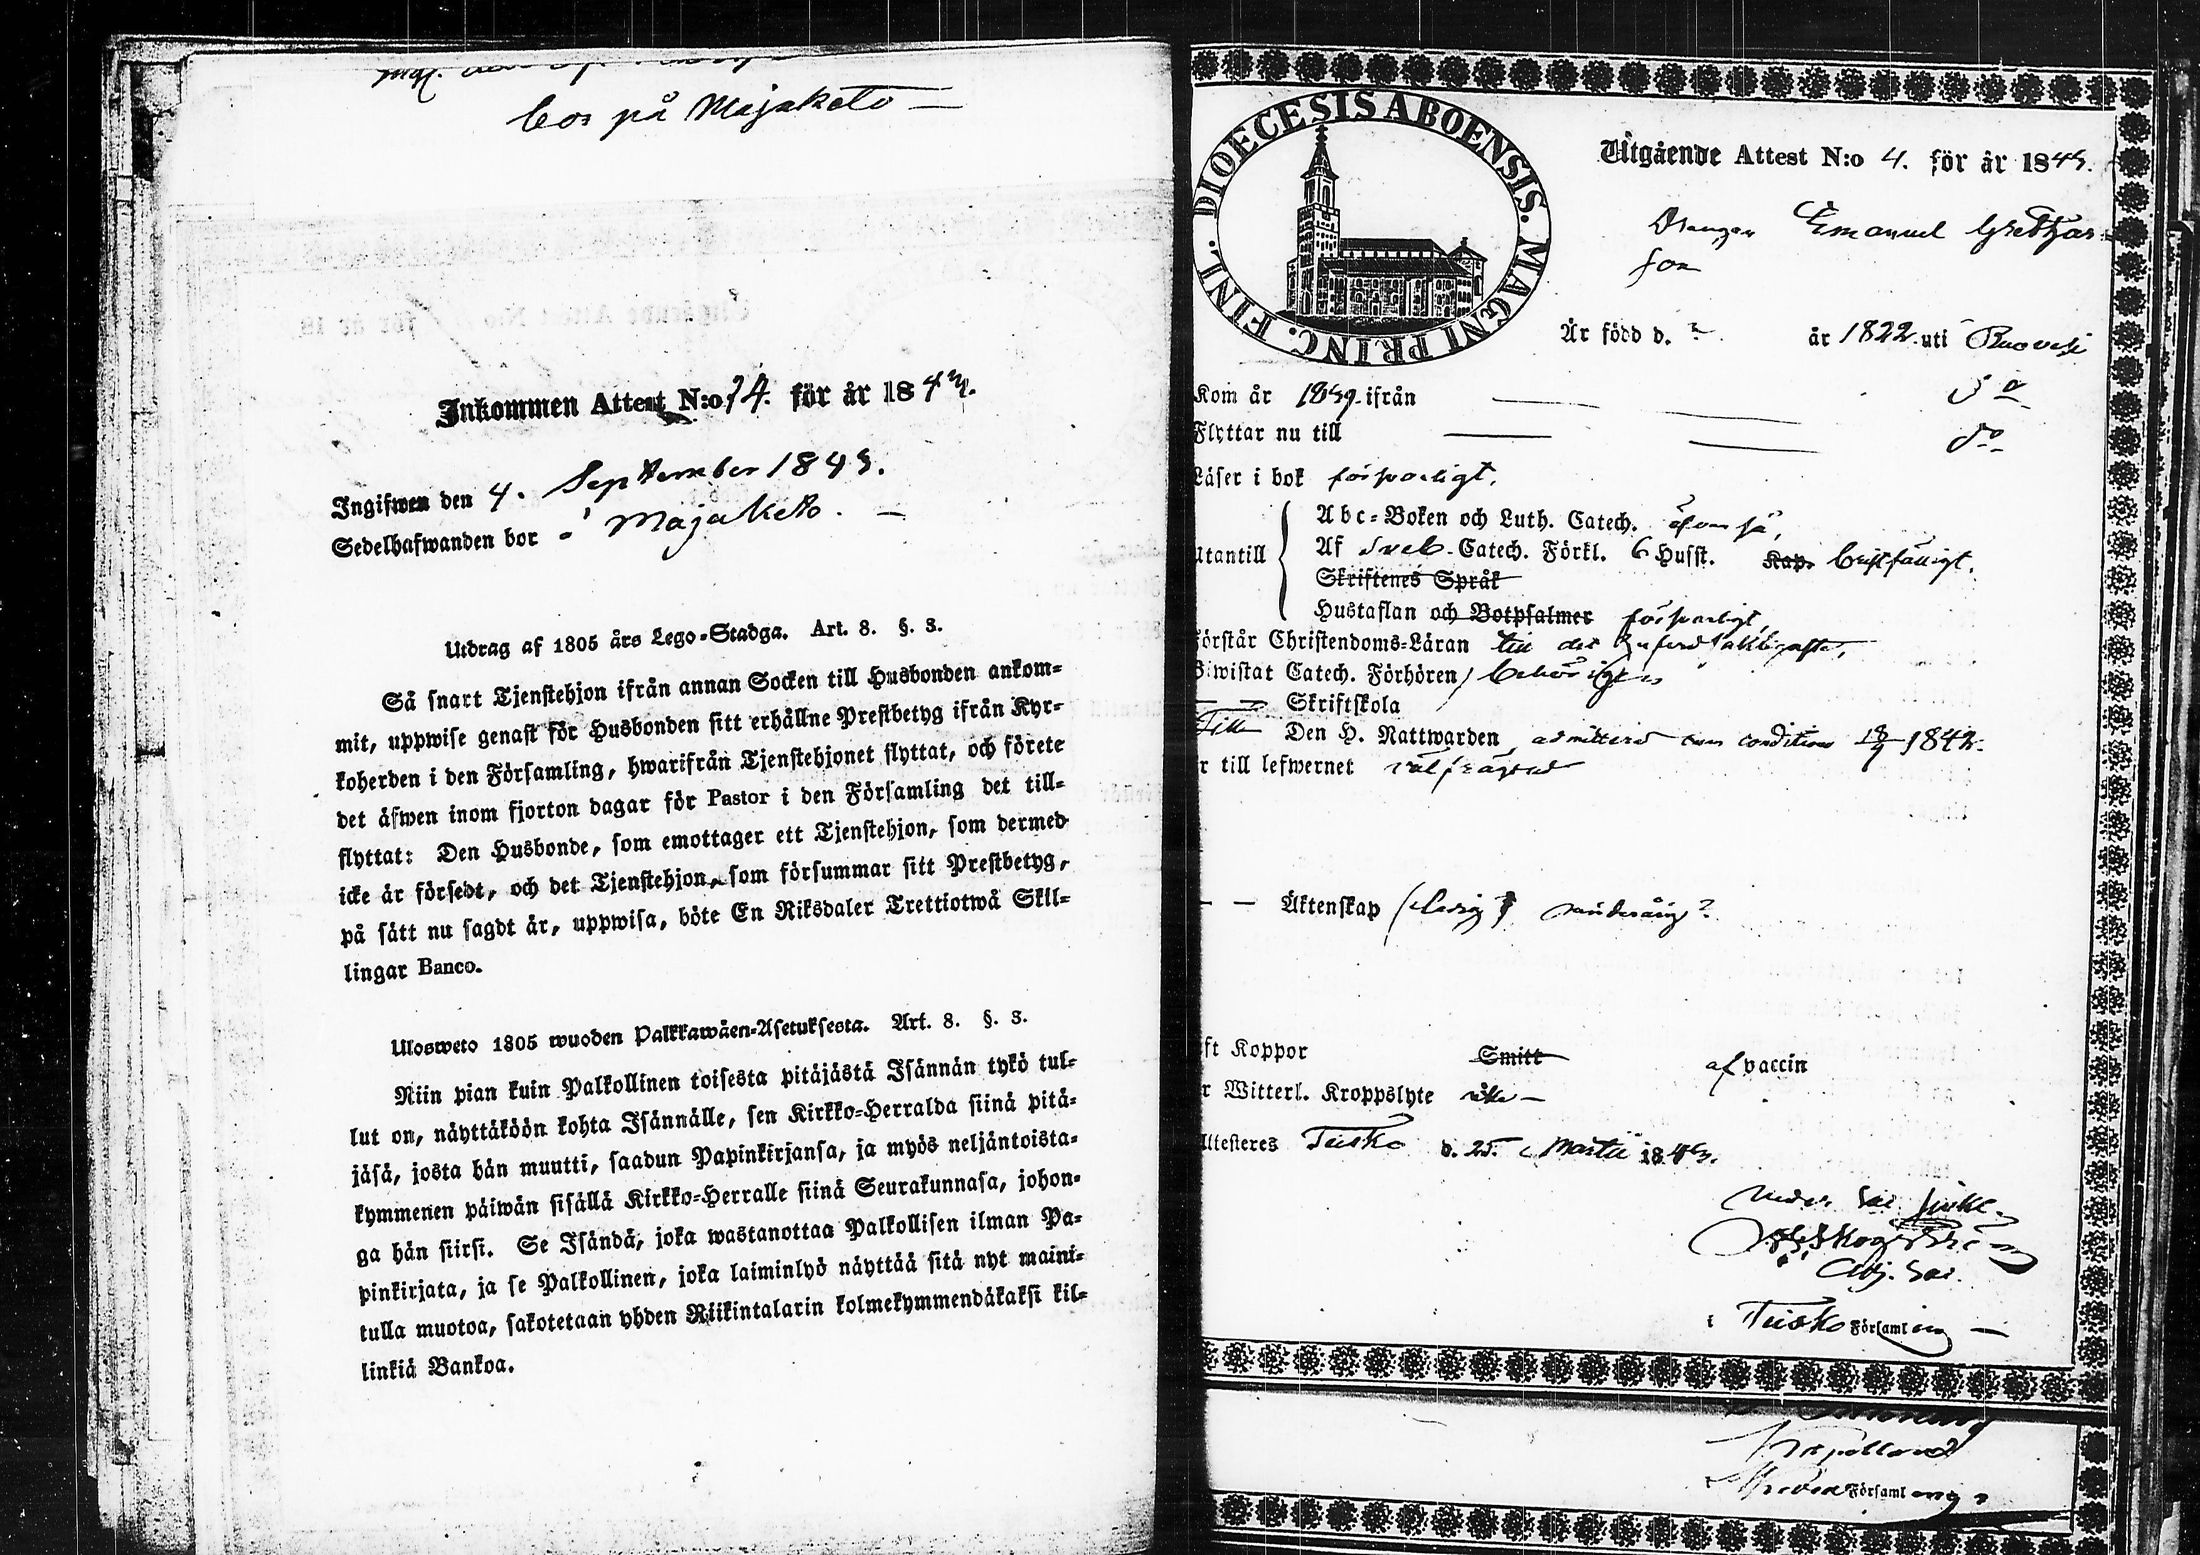 bor på Majaketo —
Inkommen Attest N:o 74. för år 1843.
Ingifwen den 4. September 1843.
Sedelhafwanden bor å Majaketo. —
Utdrag af 1805 års Lego-Stadga. Art. 8. §. 3.
Så snart Tjenstehjon ifrån annan Socken till Husbonden ankom-
mit, uppwise genast för Husbonden sitt erhållne Prestbetyg ifrån Kyr-
koherden i den Församling, hwarifrån Tjenstehjonet flyttat, och förete
det äfwen inom fjorton dagar för Pastor i den Församling det till-
flyttat: Den Husbonde, som emottager ett Tjenstehjon, som dermed
icke är försedt, och det Tjenstehjon, som försummar sitt Prestbetyg,
på sätt nu sagdt är, uppwisa, böte En Riksdaler Trettiotwå Skil-
lingar Banco.
Ulosweto 1805 wuoden Palkkawäen-Asetuksesta. Art. 8. §. 3.
Niin pian kuin Palkollinen toisesta pitäjästä Isännän tykö tul-
lut on, näyttäköön kohta Isännälle, sen Kirkko-Herralda siinä pitä-
jäsä, josta hän muutti, saadun Papinkirjansa, ja myös neljäntoista-
kymmenen päiwän sisällä Kirkko-Herralle siinä Seurakunnasa, johon-
ga hän siirsi. Se Isändä, joka wastanottaa Palkollisen ilman Pa-
pinkirjata, ja se Palkollinen, joka laiminlyö näyttää sitä nyt maini-
tulla muotoa, sakotetaan yhden Riikintalarin kolmekymmendäkaksi kil-
linkiä Bankoa.
DIOECESIS ABOENSIS. MAGNI PRINC. FINL.
Utgående Attest N:o 4. för år 1843.
Drengen Emanuel Grethas-
son
Är född d. ? år 1822 uti Ruovesi
Kom år 1839 ifrån — — do
Flyttar nu till — — do
Läser i bok försvarligt.
Abc-Boken och Luth. Catech. äfven så,
Utantill Af Sveb. Catech. Förkl. 6 Husst. Kap. bristfälligt.
Skriftenes Språk
Hustaflan och Botpsalmer försvarligt
Förstår Christendoms-Läran till
Biwistat Catech. Förhören behörigen
— — Skriftskola
Till Den H. Nattwarden admitterad cum condition 1842.
r till lefwernet välfrägdad
— — Äktenskap (ledig) minderårig?
ft Koppor Smitt af vaccin
r Witterl. Kroppslyte icke —
Attesteres Teisko d. 25. Martii 1843.
Adj. Sac.
i Teisko Församling —
Församling